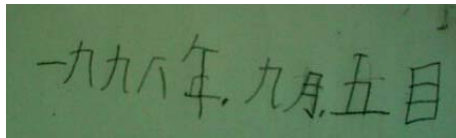 一九九八年.九月.五目